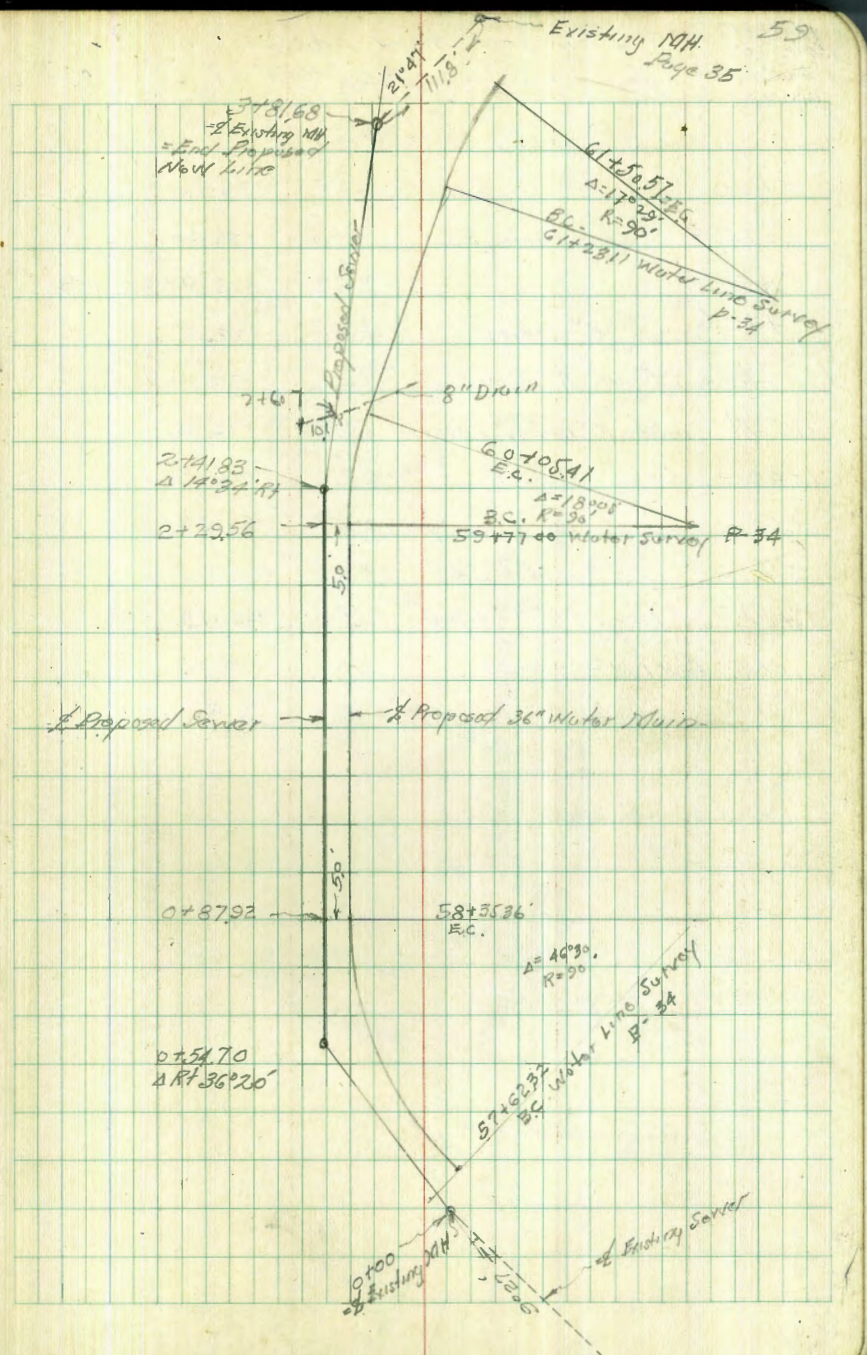 59
Existing MH.
Page 35
21°47'
111.8'
3+81.68
=℄ Existing MH
=End Proposed
New Line
61+50.57=E.C.
Δ=17°29'
R=90'
B.C.
61+23.11 Water Line Survey
p-34
Proposed Sewer
2+67
10.1
8" Drain
2+41.83
Δ 14°34' Rt
60+05.41
E.C.
Δ=18°00'
R=90'
2+29.56
B.C.
59+77.00 Water Survey P-34
5.0'
℄ Proposed Sewer
℄ Proposed 36" Water Main
5.0'
0+87.92
58+35.36
E.C.
Δ=46°30'
R=90
0+54.70
Δ Rt 36°20'
57+62.32
B.C. Water Line Survey
P-34
0+00
=℄ Existing MH
℄ Existing Sewer